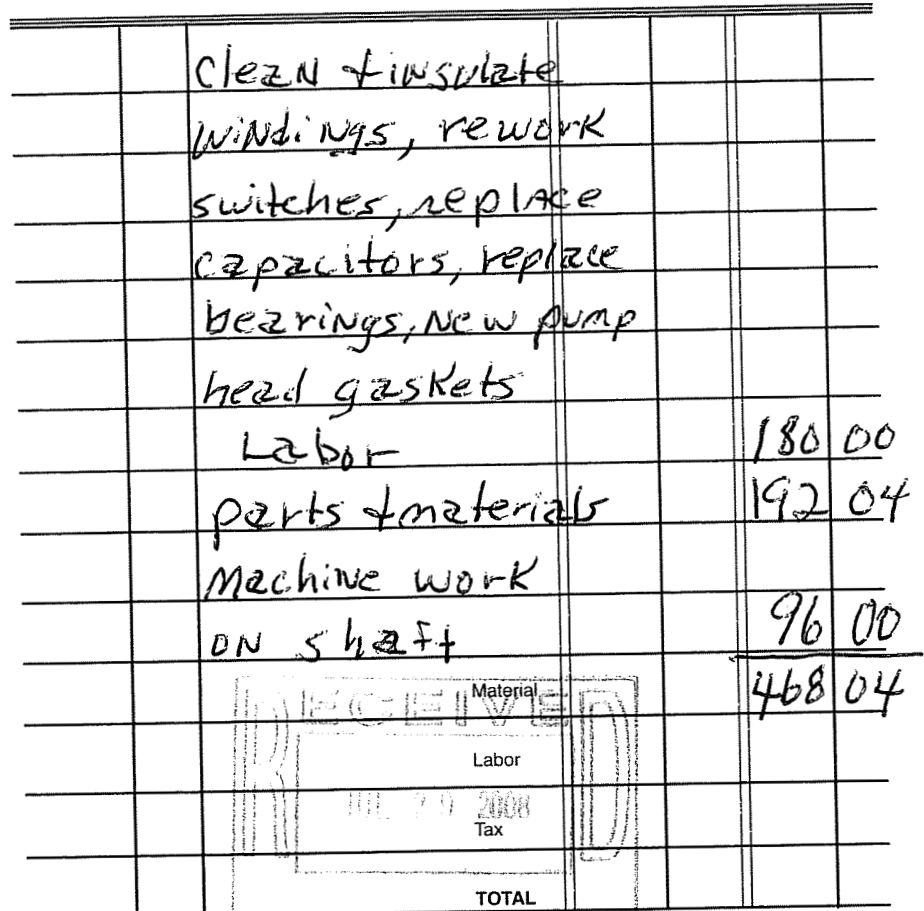 Clean + insulate
windings, rework
switches, replace
capacitors, replace
bearings, New pump
head gaskets
Labor 180 00
parts + materials 192 04
Machine work
on shaft 96 00
468 04
RECEIVED
Material
Labor
JUL 2008
Tax
TOTAL